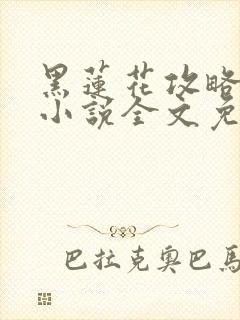 黑蓮花攻略
小說全文免
巴拉克奧巴馬